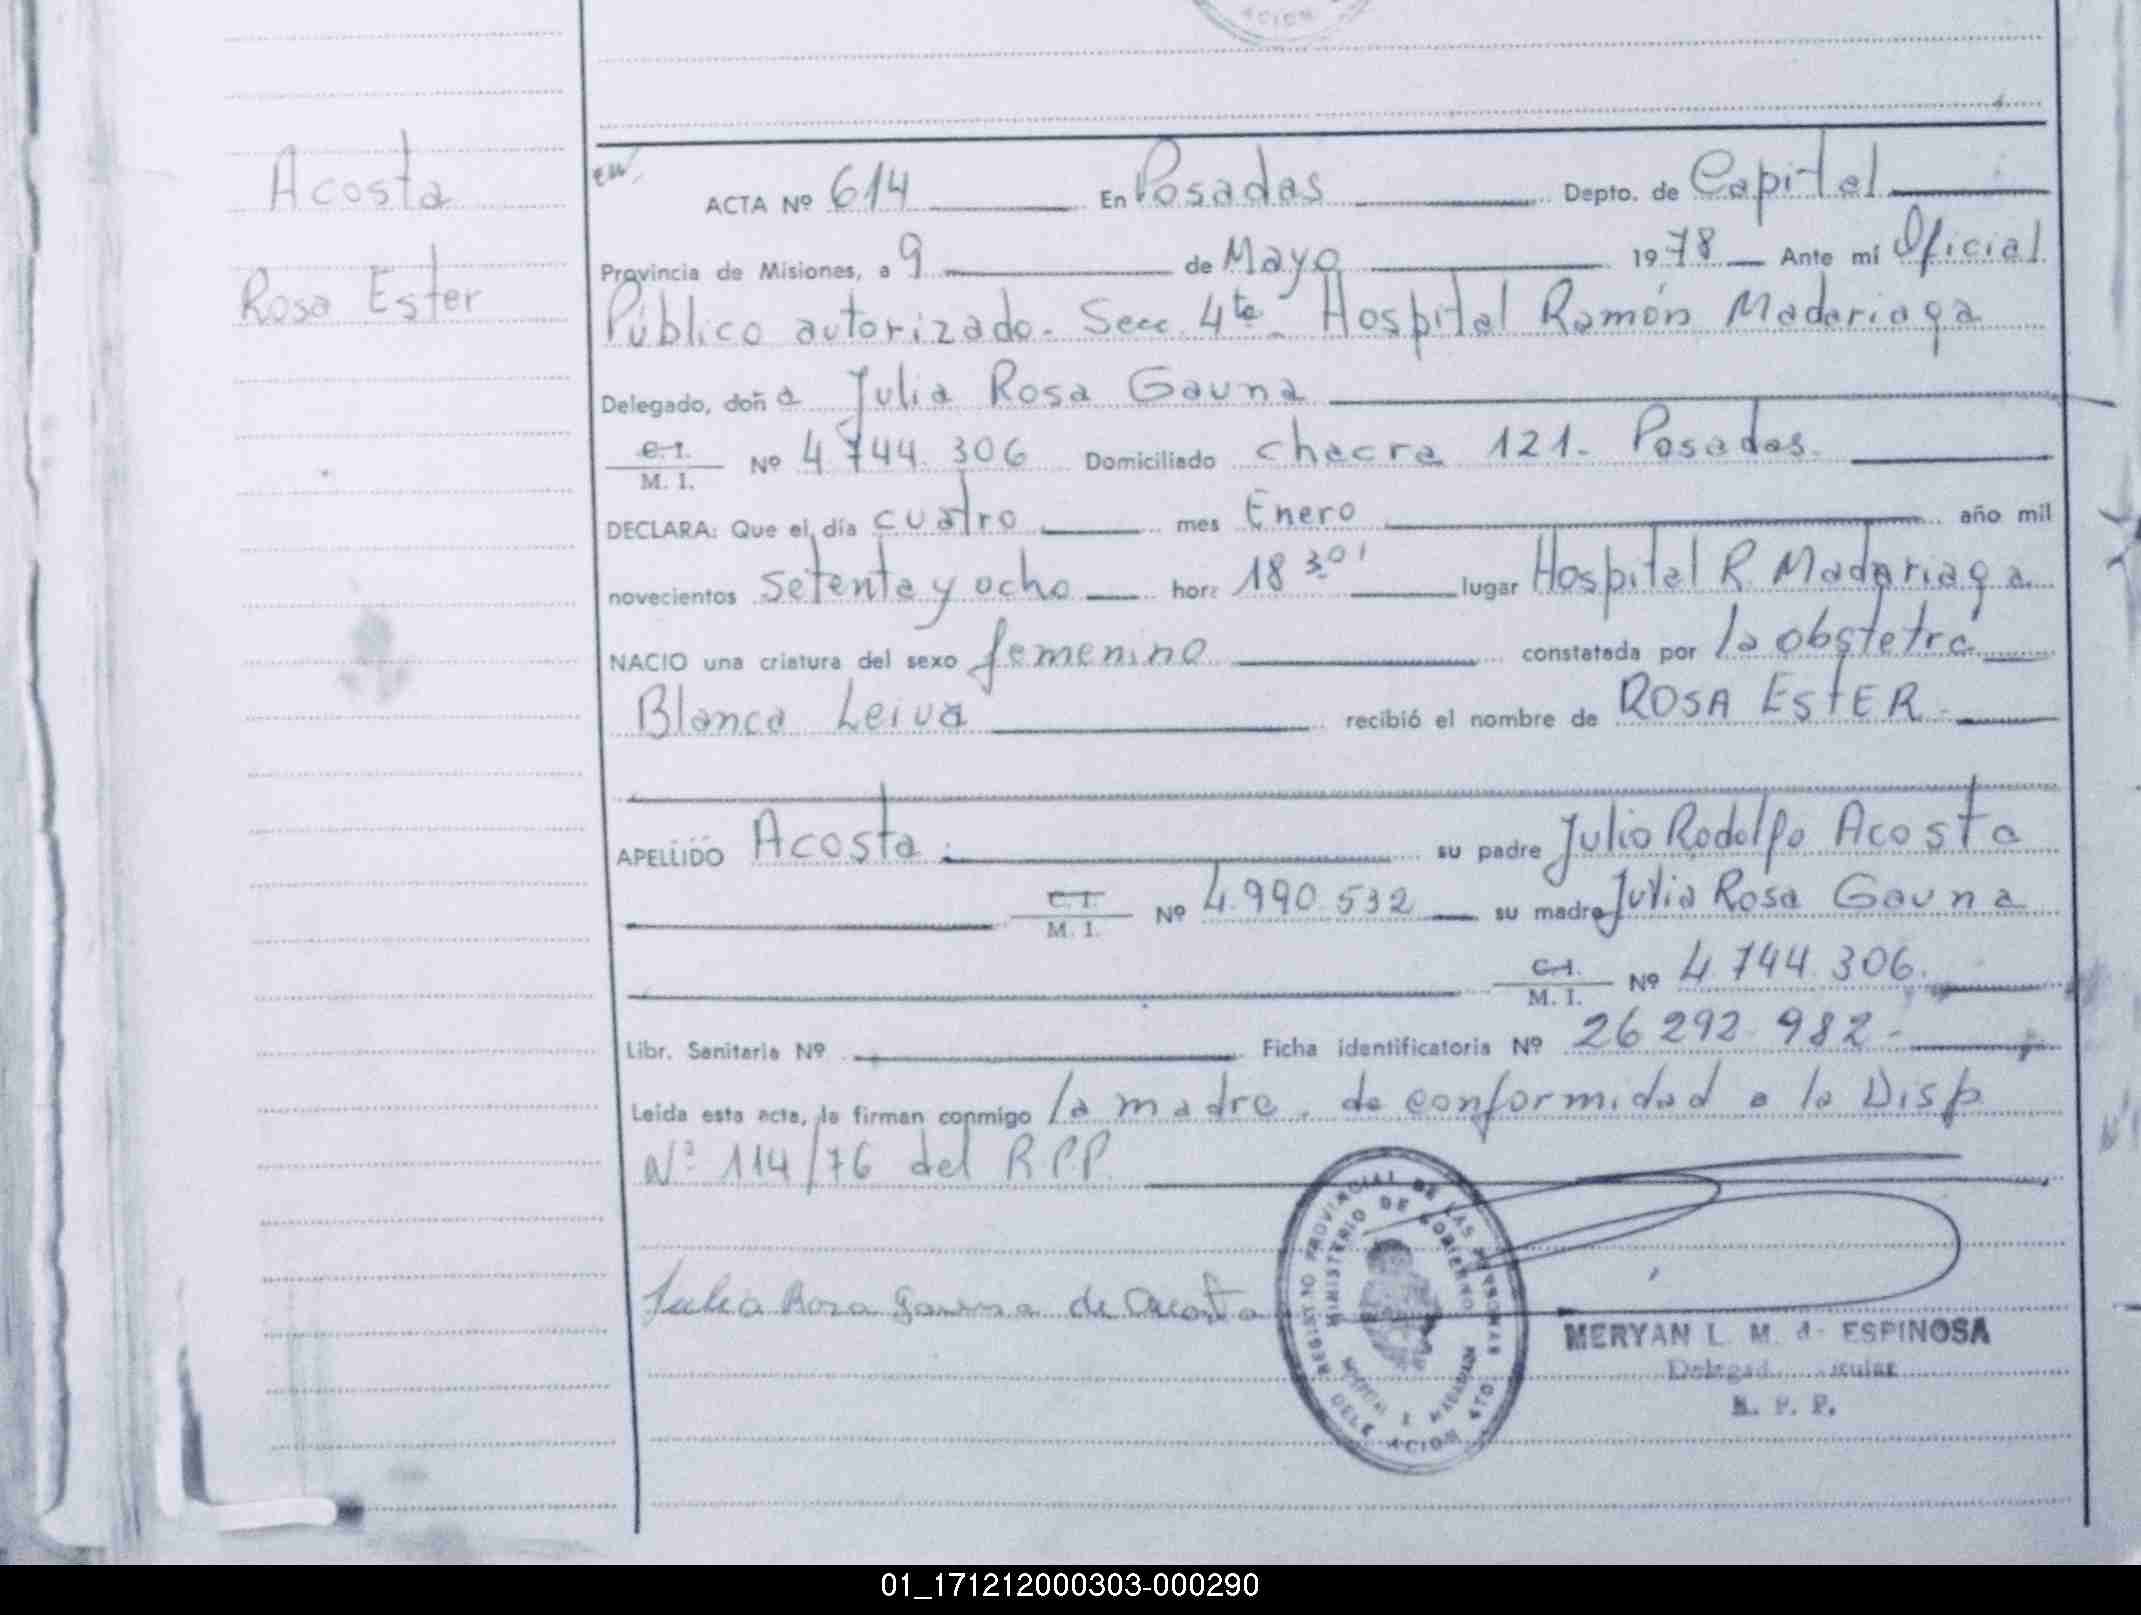 ACION
Acosta
Rosa Ester
ACTA Nº 614 En Posadas Depto. de Capital
Provincia de Misiones, a 9 de Mayo 1978 Ante mí Oficial
Público autorizado. Secc. 4ta Hospital Ramón Madariaga
Delegado, doña Julia Rosa Gauna
C.I.
M. I. Nº 4 744 306 Domiciliado chacra 121. Posadas.
DECLARA: Que el día cuatro mes Enero año mil
novecientos setenta y ocho hora 18 30' lugar Hospital R. Madariaga.
NACIO una criatura del sexo femenino constatada por la obstetra
Blanca Leiva recibió el nombre de ROSA EstER
APELLIDO Acosta su padre Julio Rodolfo Acosta
C.I.
M. I. Nº 4.990.532 su madre Julia Rosa Gauna
C.I.
M. I. Nº 4 744 306.
Libr. Sanitaria Nº Ficha identificatoria Nº 26 292 982-
Leída esta acta, la firman conmigo la madre. de conformidad a la Disp
Nº 114/76 del R P P
Julia Rosa Gauna de Acosta
REGISTRO PROVINCIAL DE LAS PERSONAS
MINISTERIO DE GOBIERNO
HOSPITAL R MADARIAGA
DELEGACION 4TO
MERYAN L. M. d ESPINOSA
R. P. P.
01_171212000303-000290